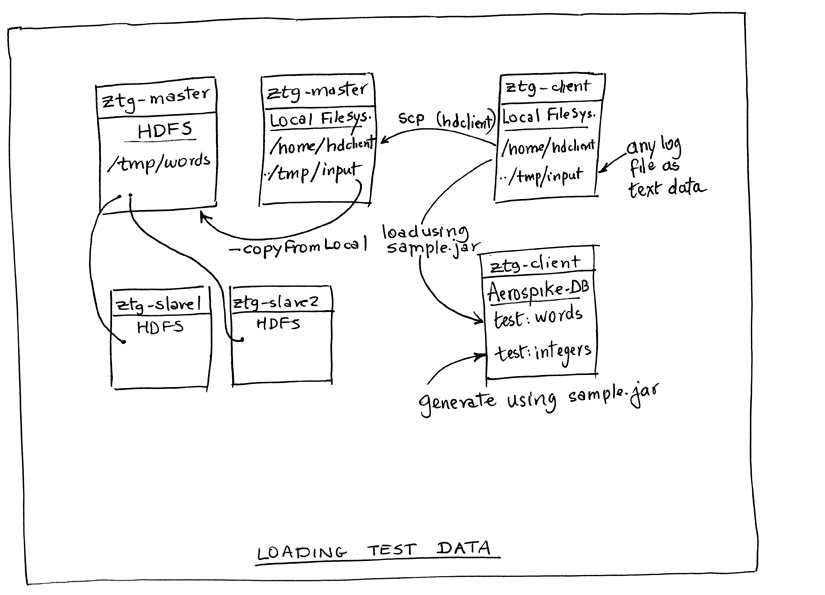 ztg-master
HDFS
/tmp/words
ztg-master
Local FileSys.
/home/hdclient
../tmp/input
scp (hdclient)
ztg-client
Local FileSys.
/home/hdclient
../tmp/input
any log
file as
text data
-copyFromLocal
load using
sample.jar
ztg-slave1
HDFS
ztg-slave2
HDFS
ztg-client
Aerospike-DB
test:words
test:integers
generate using sample.jar
LOADING TEST DATA